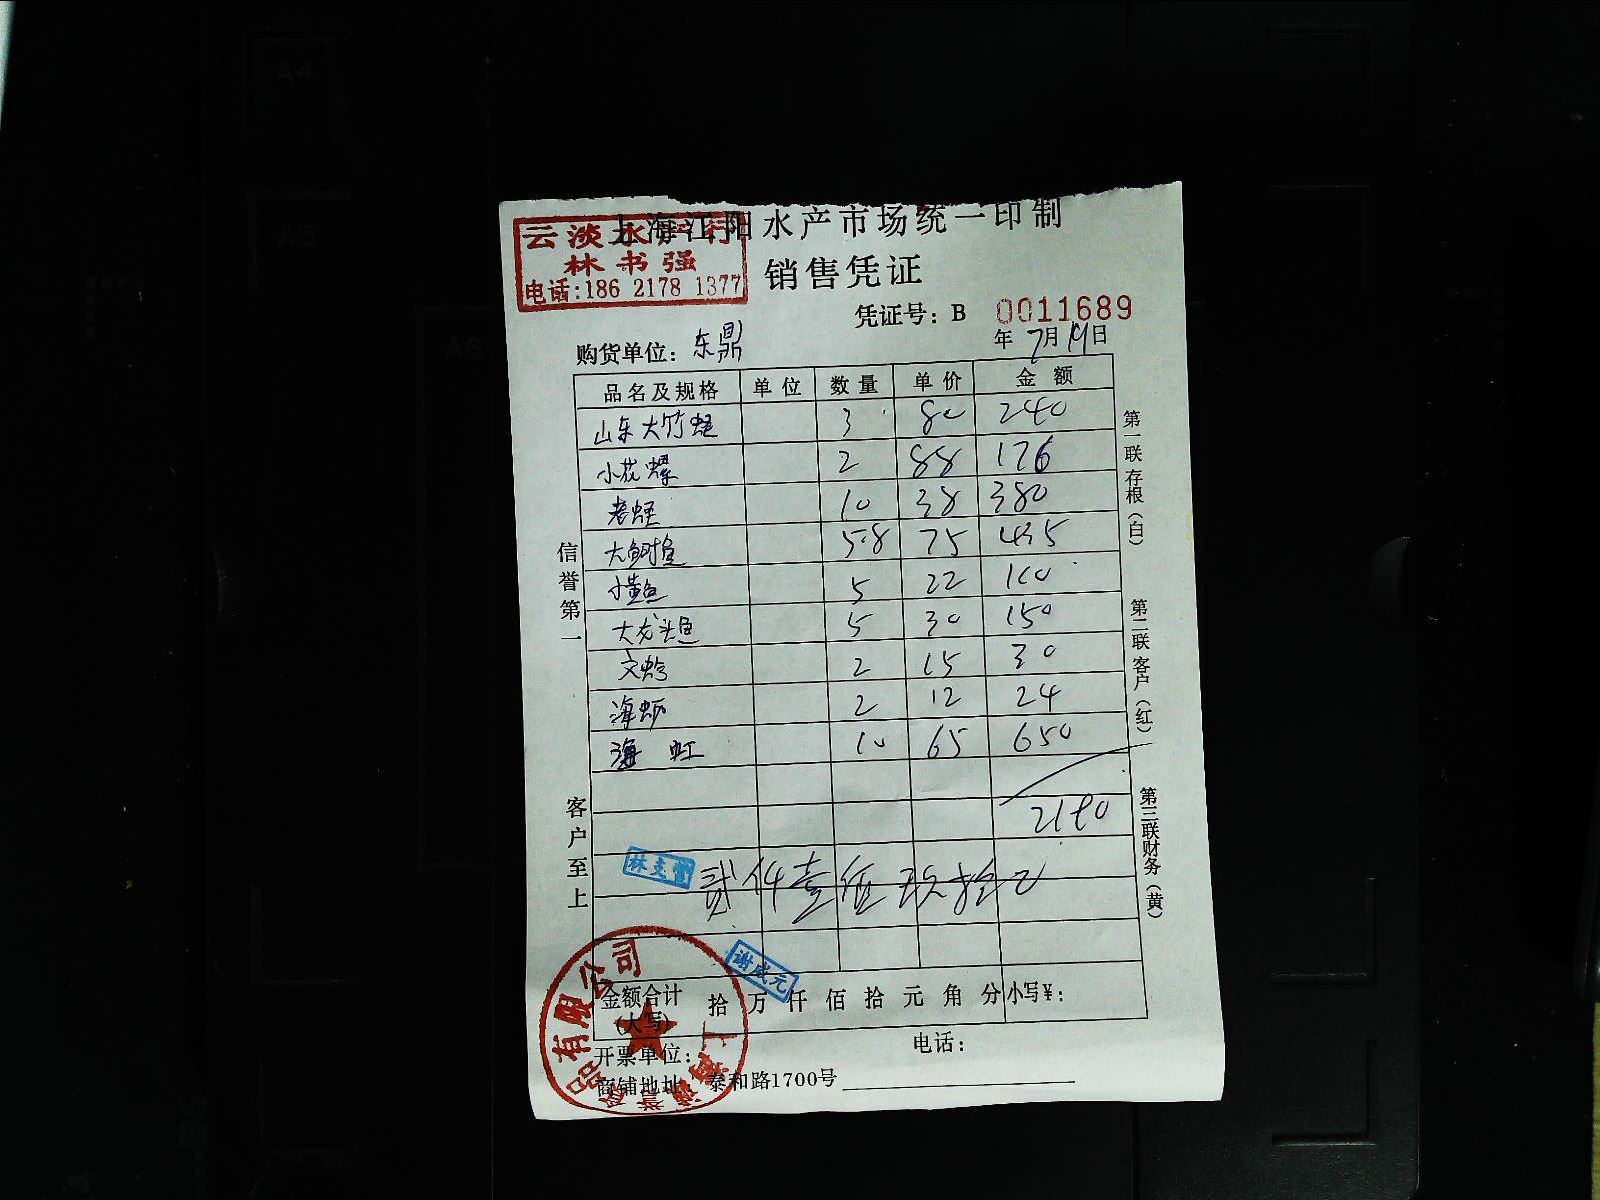 上海江阳水产市场统一印制
云淡水产行
林书强
电话:186 2178 1377
销售凭证
凭证号: B 0011689
购货单位: 东鼎
年 7月19日
品名及规格 单位 数量 单价 金额
山东大竹蛏 3 80 240
小花螺 2 88 176
老蛏 10 38 380
大鲥鱼 5.8 75 435
小黄鱼 5 22 110
大龙头鱼 5 30 150
文蛤 2 15 30
海蛎 2 12 24
海虹 10 65 650
2190
贰仟壹佰玖拾元
信誉第一
客户至上
第一联存根(白)
第二联客户(红)
第三联财务(黄)
谢成元
金额合计
(大写)
拾万仟佰拾元角分 小写¥:
开票单位:
电话:
商铺地址: 泰和路1700号
品有限公司
上海